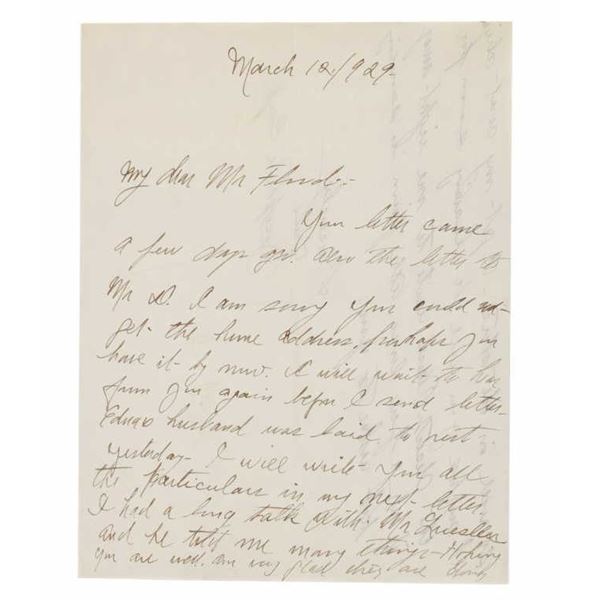 March 12/1929-
My dear Mr Flood:-
Your letter came
a few days ago. Also the letter to
Mr D. I am sorry you could not-
get- the home address, perhaps you
have it- by now. I will wait- to hear
from you again before I send letter-
Ednas husband was laid to rest-
yesterday- I will write- you all
the particulars in my next- letter.
I had a long talk with- Mr
and he told me many things- Hoping
you are well. am very glad they are